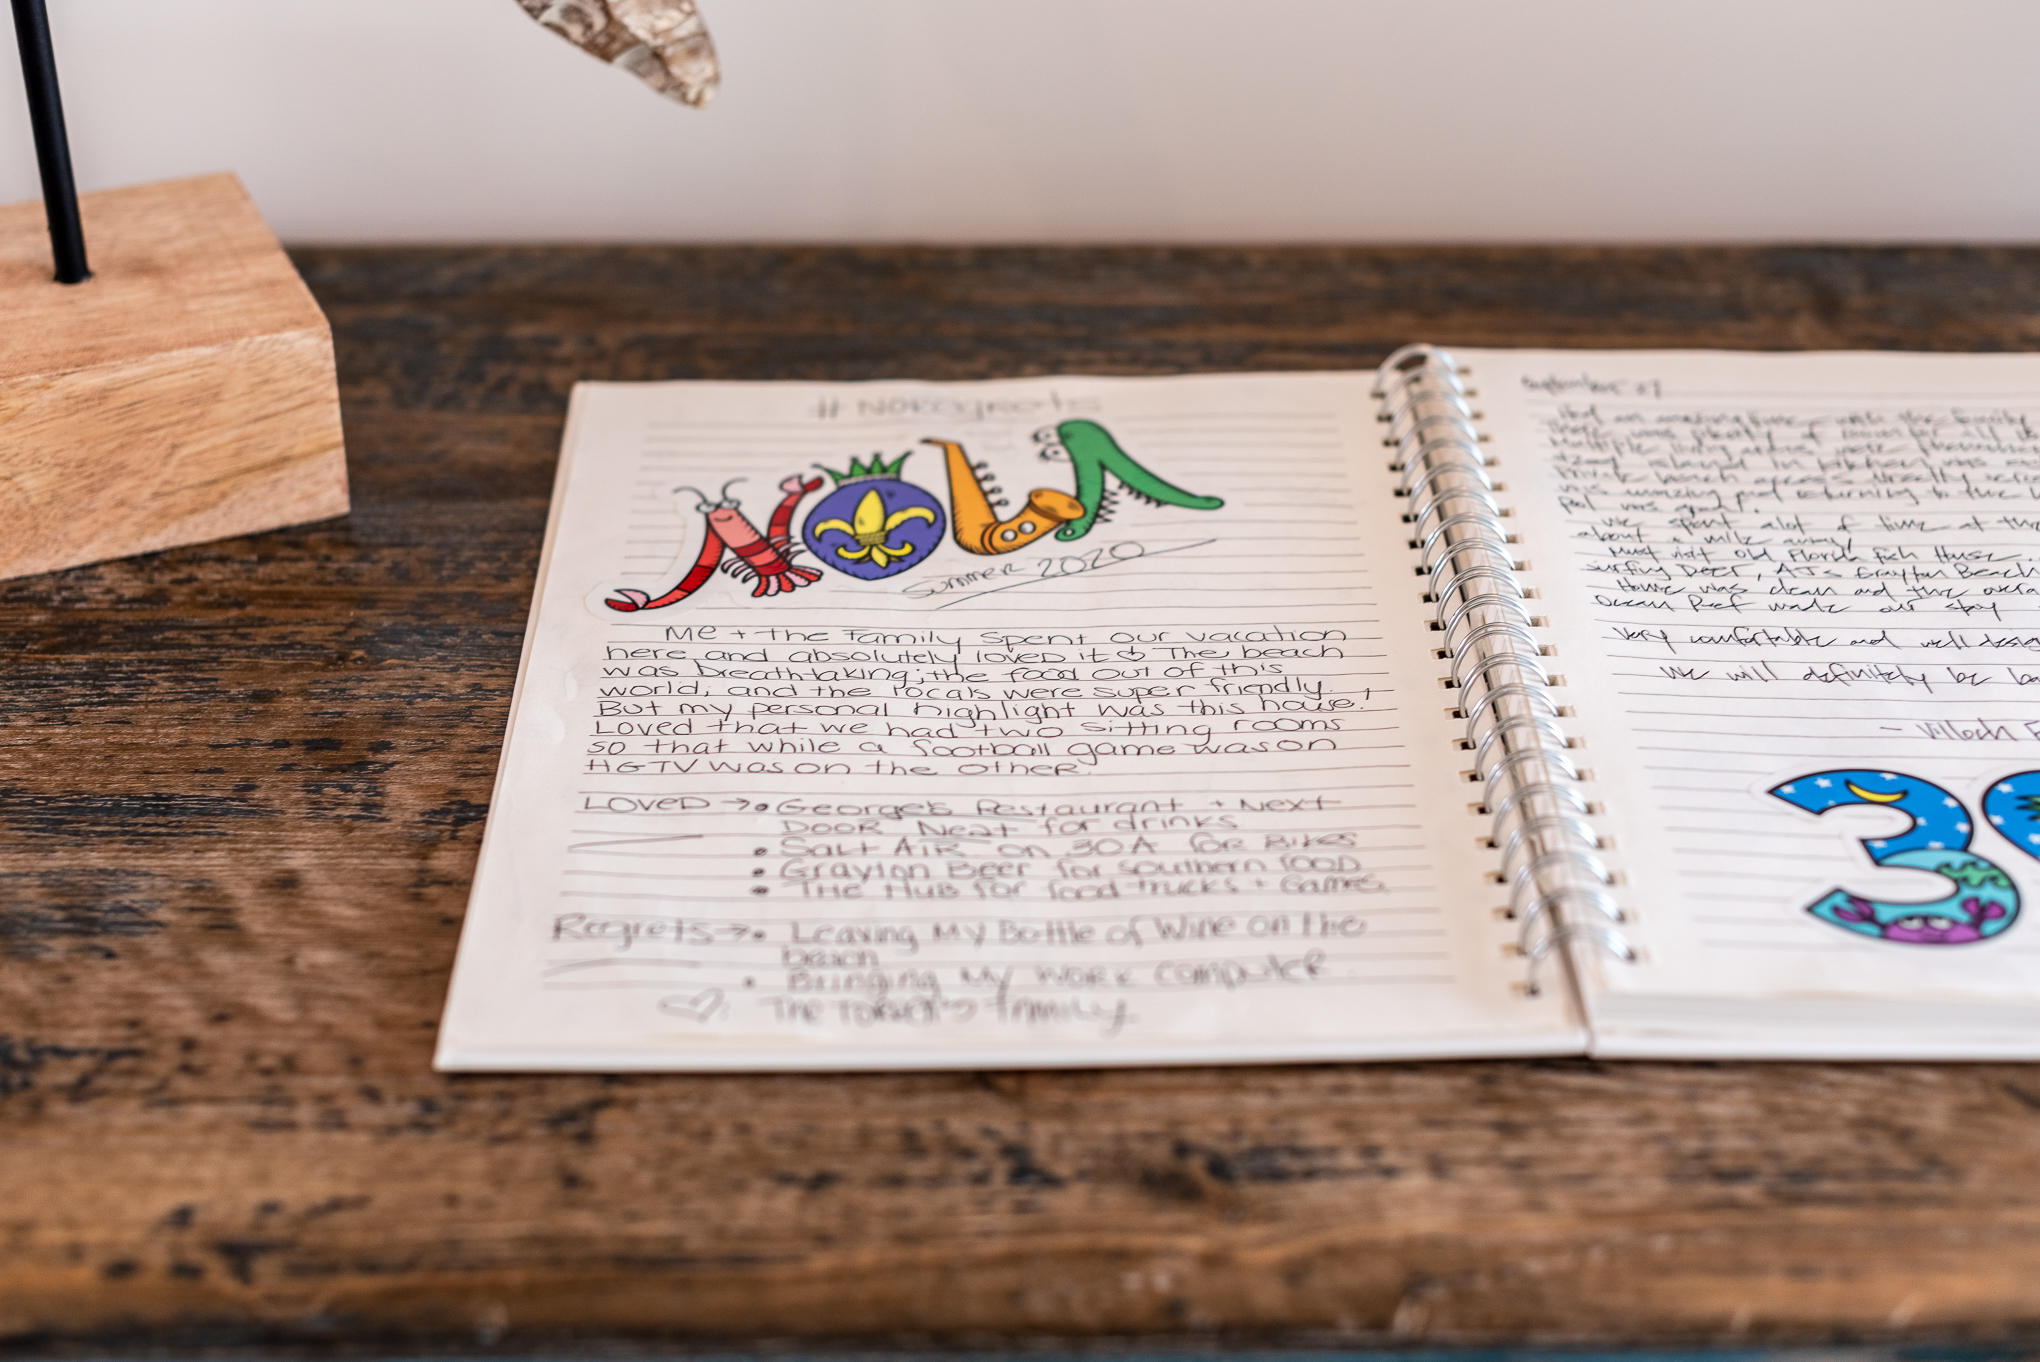 #Noregrets
NOLA
Summer 2020
Me + the Family spent our vacation
here and absolutely loved it The beach
was breathtaking, the food out of this
world, and the locals were super friendly.
But my personal highlight was this house!
Loved that we had two sitting rooms
so that while a football game was on
HGTV was on the other.
Loved → • George's Restaurant + Next
Door Neat for drinks
• Salt Air on 30A for Bikes
• Grayton Beer for southern food
• The Hub for food trucks + Games.
Regrets → • Leaving My Bottle of Wine on the
beach
• Bringing My work computer
The family
September 27
Had an amazing time with the family
There was plenty of room for all
Multiple living areas were
island in kitchen was
beach access directly
was amazing and returning to the
Pool was great!
We spent alot of time at the
about a mile away!
Must visit Old Florida Fish House,
Surfing Deer, AJs Grayton Beach
Home was clean and the
Ocean Reef made our stay
Very comfortable and well
We will definitely be
3